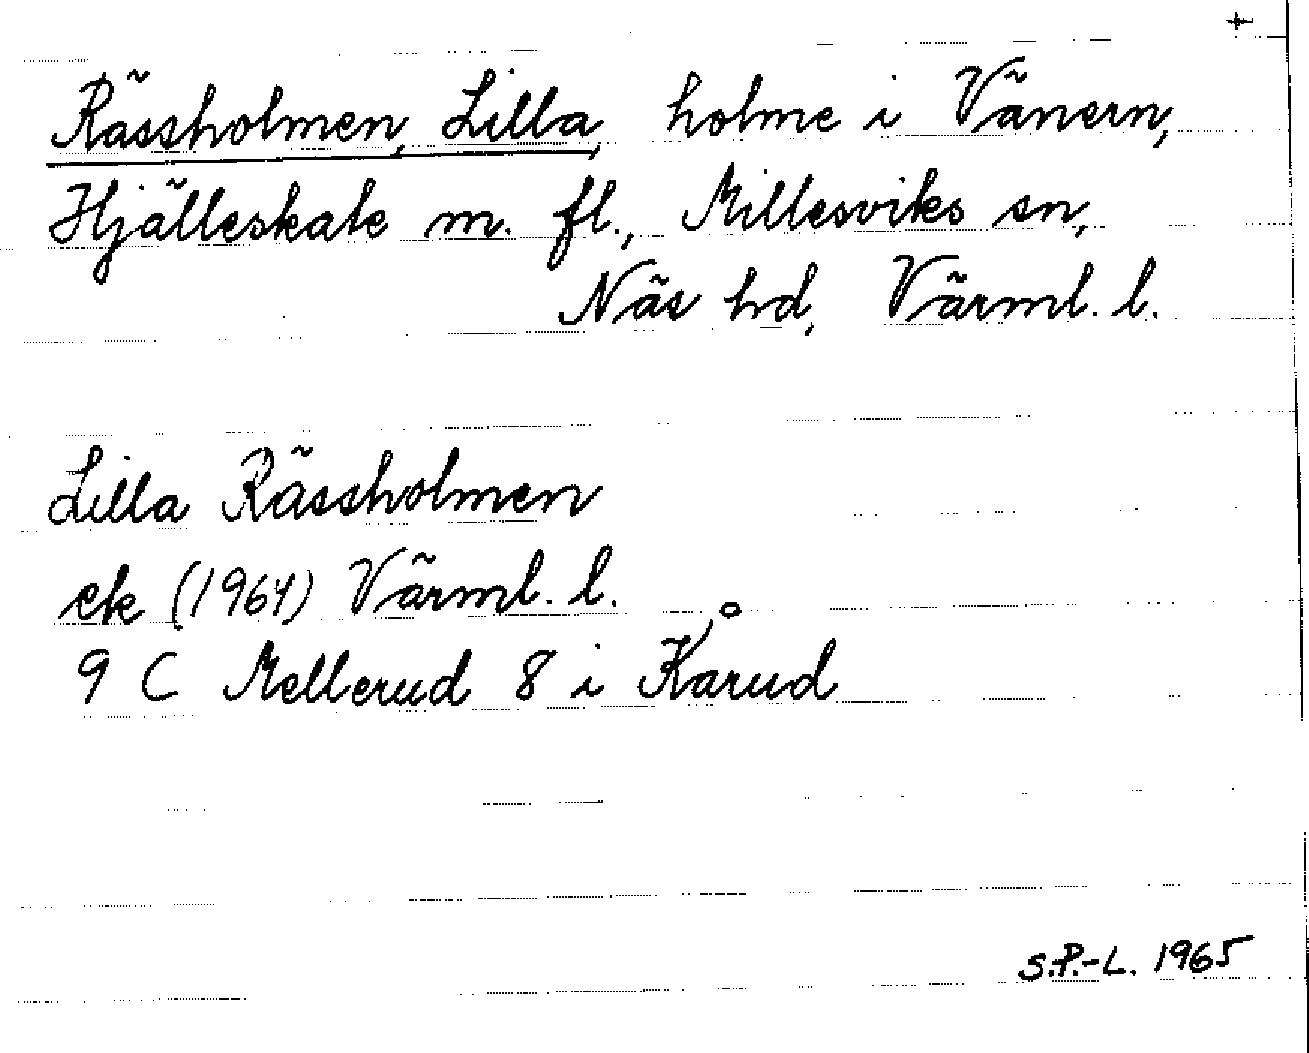 +
Rässholmen, Lilla, holme i Vänern,
Hjälleskate m. fl., Millesviks sn,
Näs hd, Värml. l.
Lilla Rässholmen
ek (1964) Värml. l.
9 C Mellerud 8 i Kårud
S.P.-L. 1965